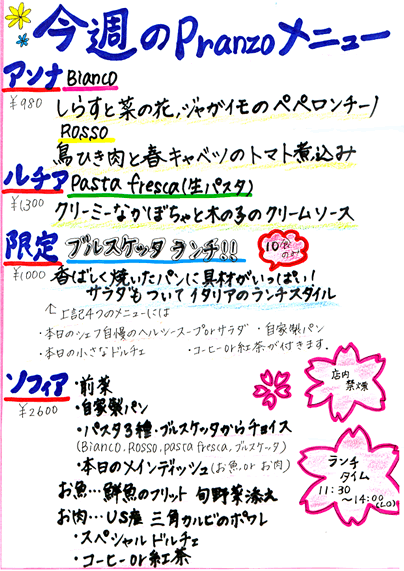 今週のPranzoメニュー
アンナ Bianco
¥980
しらすと菜の花,ジャガイモのペペロンチーノ
Rosso
鳥ひき肉と春キャベツのトマト煮込み
ルチア Pasta fresca(生パスタ)
¥1300
クリーミーなかぼちゃと木の子のクリームソース
限定 ブルスケッタ ランチ!! 10食のみ
¥1000
香ばしく焼いたパンに具材がいっぱい!
サラダもついてイタリアのランチスタイル
↑上記4つのメニューには
・本日のシェフ自慢のヘルシースープorサラダ ・自家製パン
・本日の小さなドルチェ ・コーヒーor紅茶が付きます.
店内禁煙
ソフィア
¥2600
・前菜
・自家製パン
・パスタ3種・ブルスケッタからチョイス
(Bianco,Rosso,pasta fresca,ブルスケッタ)
・本日のメインディッシュ(お魚,or お肉)
お魚…鮮魚のフリット 旬野菜添え
お肉…US産 三角カルビのポワレ
・スペシャルドルチェ
・コーヒーor紅茶
ランチタイム
11:30
〜14:00(LO)